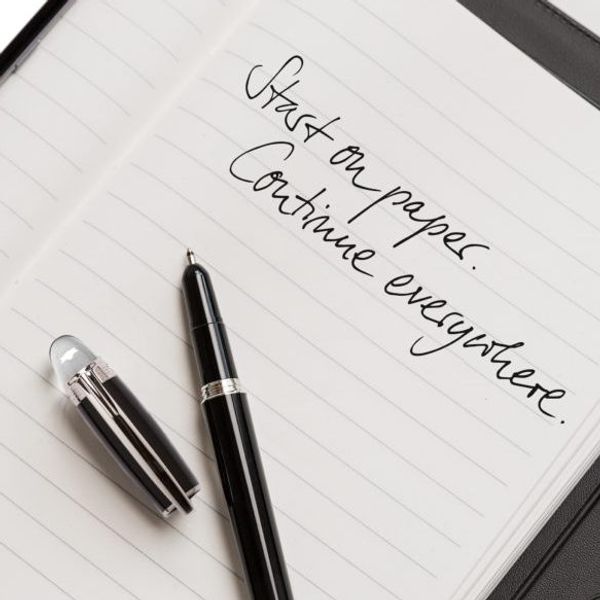 Start on paper.
Continue everywhere.